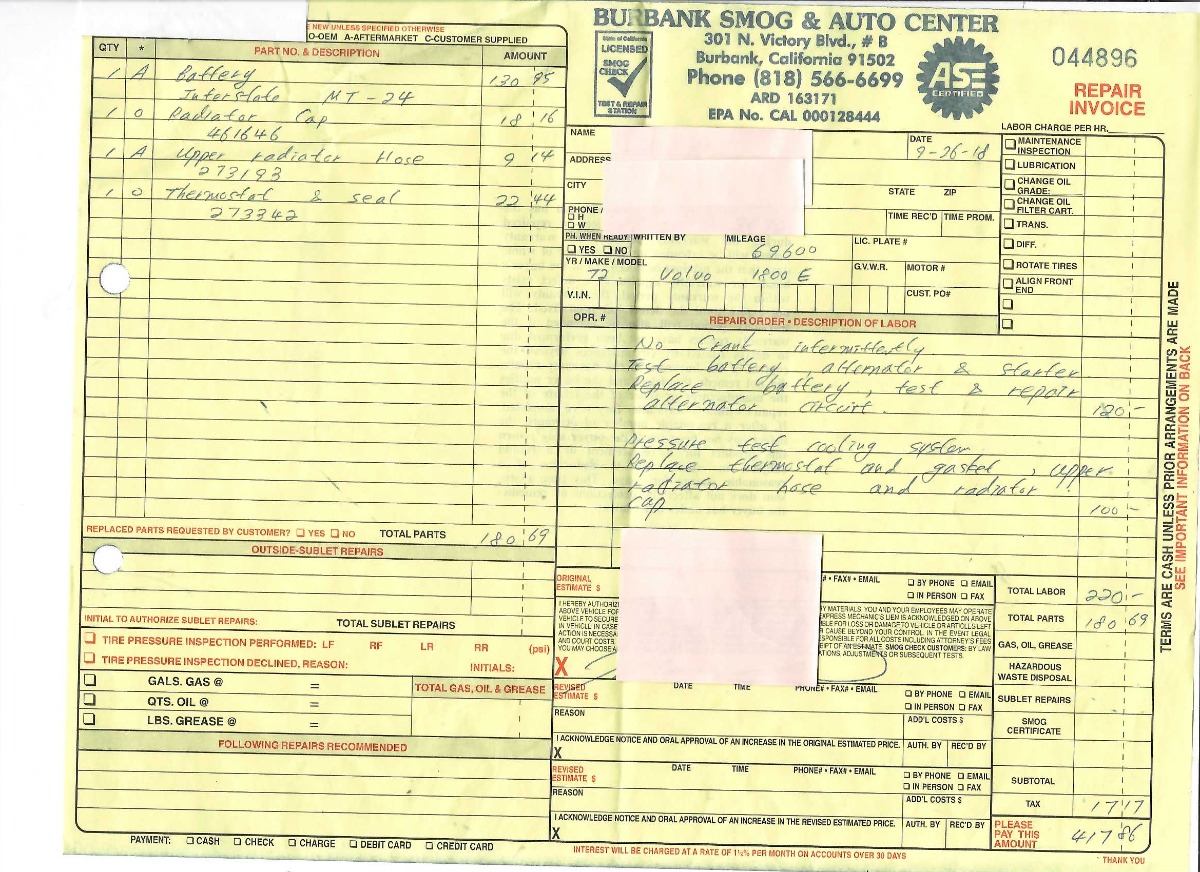 NEW UNLESS SPECIFIED OTHERWISE
O-OEM A-AFTERMARKET C-CUSTOMER SUPPLIED
QTY * PART NO. & DESCRIPTION AMOUNT
1 A Battery 130 95
Interstate MT-24
1 O Radiator Cap 18 16
461646
1 A Upper radiator Hose 9 14
273193
1 O Thermostat & seal 22 44
273342
REPLACED PARTS REQUESTED BY CUSTOMER? YES NO TOTAL PARTS 180 69
OUTSIDE-SUBLET REPAIRS
INITIAL TO AUTHORIZE SUBLET REPAIRS: TOTAL SUBLET REPAIRS
TIRE PRESSURE INSPECTION PERFORMED: LF RF LR RR (psi)
TIRE PRESSURE INSPECTION DECLINED, REASON: INITIALS:
GALS. GAS @ = TOTAL GAS, OIL & GREASE
QTS. OIL @ =
LBS. GREASE @ =
FOLLOWING REPAIRS RECOMMENDED
PAYMENT: CASH CHECK CHARGE DEBIT CARD CREDIT CARD
BURBANK SMOG & AUTO CENTER
301 N. Victory Blvd., # B
Burbank, California 91502
Phone (818) 566-6699
ARD 163171
EPA No. CAL 000128444
State of California
LICENSED
SMOG
CHECK
TEST & REPAIR
STATION
ASE
CERTIFIED
044896
REPAIR
INVOICE
LABOR CHARGE PER HR.
NAME DATE
9-26-18
ADDRESS
CITY STATE ZIP
PHONE /
H
W
TIME REC'D TIME PROM.
PH. WHEN READY WRITTEN BY MILEAGE LIC. PLATE #
YES NO 69600
YR / MAKE / MODEL G.V.W.R. MOTOR #
72 Volvo 1800 E
V.I.N. CUST. PO#
MAINTENANCE
INSPECTION
LUBRICATION
CHANGE OIL
GRADE:
CHANGE OIL
FILTER CART.
TRANS.
DIFF.
ROTATE TIRES
ALIGN FRONT
END
OPR. # REPAIR ORDER • DESCRIPTION OF LABOR
No Crank intermittently
Test battery, alternator & starter
Replace battery, test & repair
alternator circuit. 120 -
Pressure test cooling system
Replace thermostat and gasket, upper
radiator hose and radiator
cap. 100 -
ORIGINAL
ESTIMATE $
# • FAX# • EMAIL BY PHONE EMAIL
IN PERSON FAX
I HEREBY AUTHORIZ
ABOVE VEHICLE FOR
VEHICLE TO SECURE
IN VEHICLE IN CASE
ACTION IS NECESSA
AND COURT COSTS
YOU MAY CHOOSE A
Y MATERIALS. YOU AND YOUR EMPLOYEES MAY OPERATE
EXPRESS MECHANIC'S LIEN IS ACKNOWLEDGED ON ABOVE
BLE FOR LOSS OR DAMAGE TO VEHICLE OR ARTICLES LEFT
R CAUSE BEYOND YOUR CONTROL. IN THE EVENT LEGAL
SPONSIBLE FOR ALL COSTS INCLUDING ATTORNEY'S FEES
CEIPT OF AN ESTIMATE. SMOG CHECK CUSTOMERS: BY LAW
ATIONS, ADJUSTMENTS OR SUBSEQUENT TESTS.
X
REVISED
ESTIMATE $ DATE TIME PHONE# • FAX# • EMAIL BY PHONE EMAIL
IN PERSON FAX
REASON ADD'L COSTS $
I ACKNOWLEDGE NOTICE AND ORAL APPROVAL OF AN INCREASE IN THE ORIGINAL ESTIMATED PRICE. AUTH. BY REC'D BY
X
REVISED
ESTIMATE $ DATE TIME PHONE# • FAX# • EMAIL BY PHONE EMAIL
IN PERSON FAX
REASON ADD'L COSTS $
I ACKNOWLEDGE NOTICE AND ORAL APPROVAL OF AN INCREASE IN THE REVISED ESTIMATED PRICE. AUTH. BY REC'D BY
X
INTEREST WILL BE CHARGED AT A RATE OF 1½% PER MONTH ON ACCOUNTS OVER 30 DAYS
TOTAL LABOR 220 -
TOTAL PARTS 180 69
GAS, OIL, GREASE
HAZARDOUS
WASTE DISPOSAL
SUBLET REPAIRS
SMOG
CERTIFICATE
SUBTOTAL
TAX 17 17
PLEASE
PAY THIS
AMOUNT 417 86
THANK YOU
TERMS ARE CASH UNLESS PRIOR ARRANGEMENTS ARE MADE
SEE IMPORTANT INFORMATION ON BACK